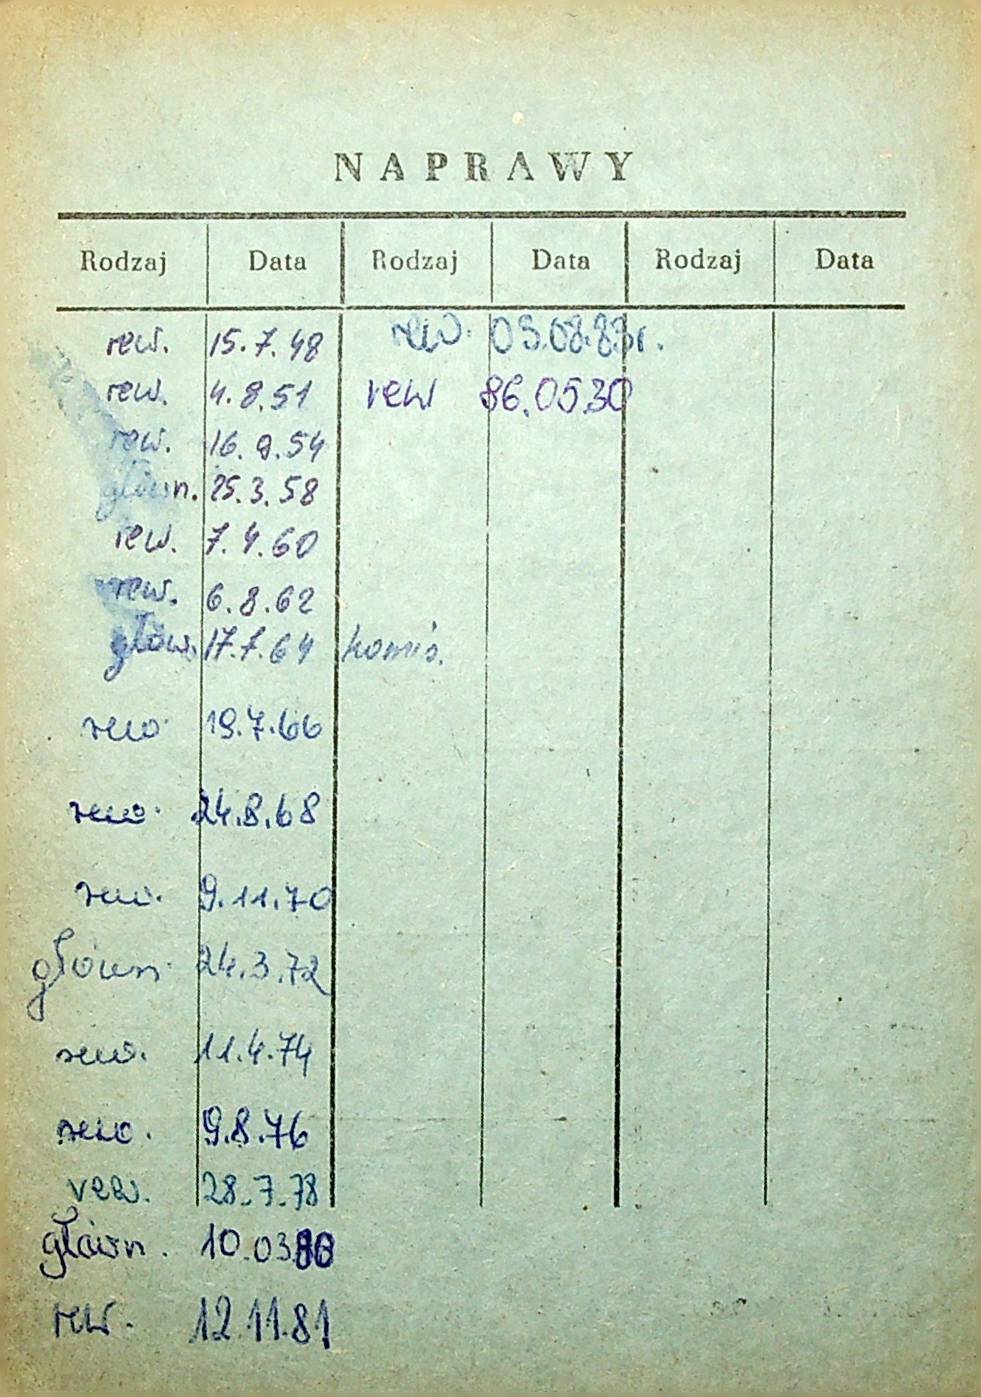 NAPRAWY
Rodzaj Data Rodzaj Data Rodzaj Data
rew. 15.7.48 rew. 03.08.83r.
rew. 4.8.51 rew 86.05.30
rew. 16.9.54
główn. 25.3.58
rew. 7.4.60
rew. 6.8.62
głów. 17.7.64 komis.
rew 19.7.66
rew. 24.8.68
rew. 9.11.70
główn. 24.3.72
rew. 11.4.74
rew. 9.8.76
rew. 28.7.78
główn. 10.03.80
rew. 12.11.81